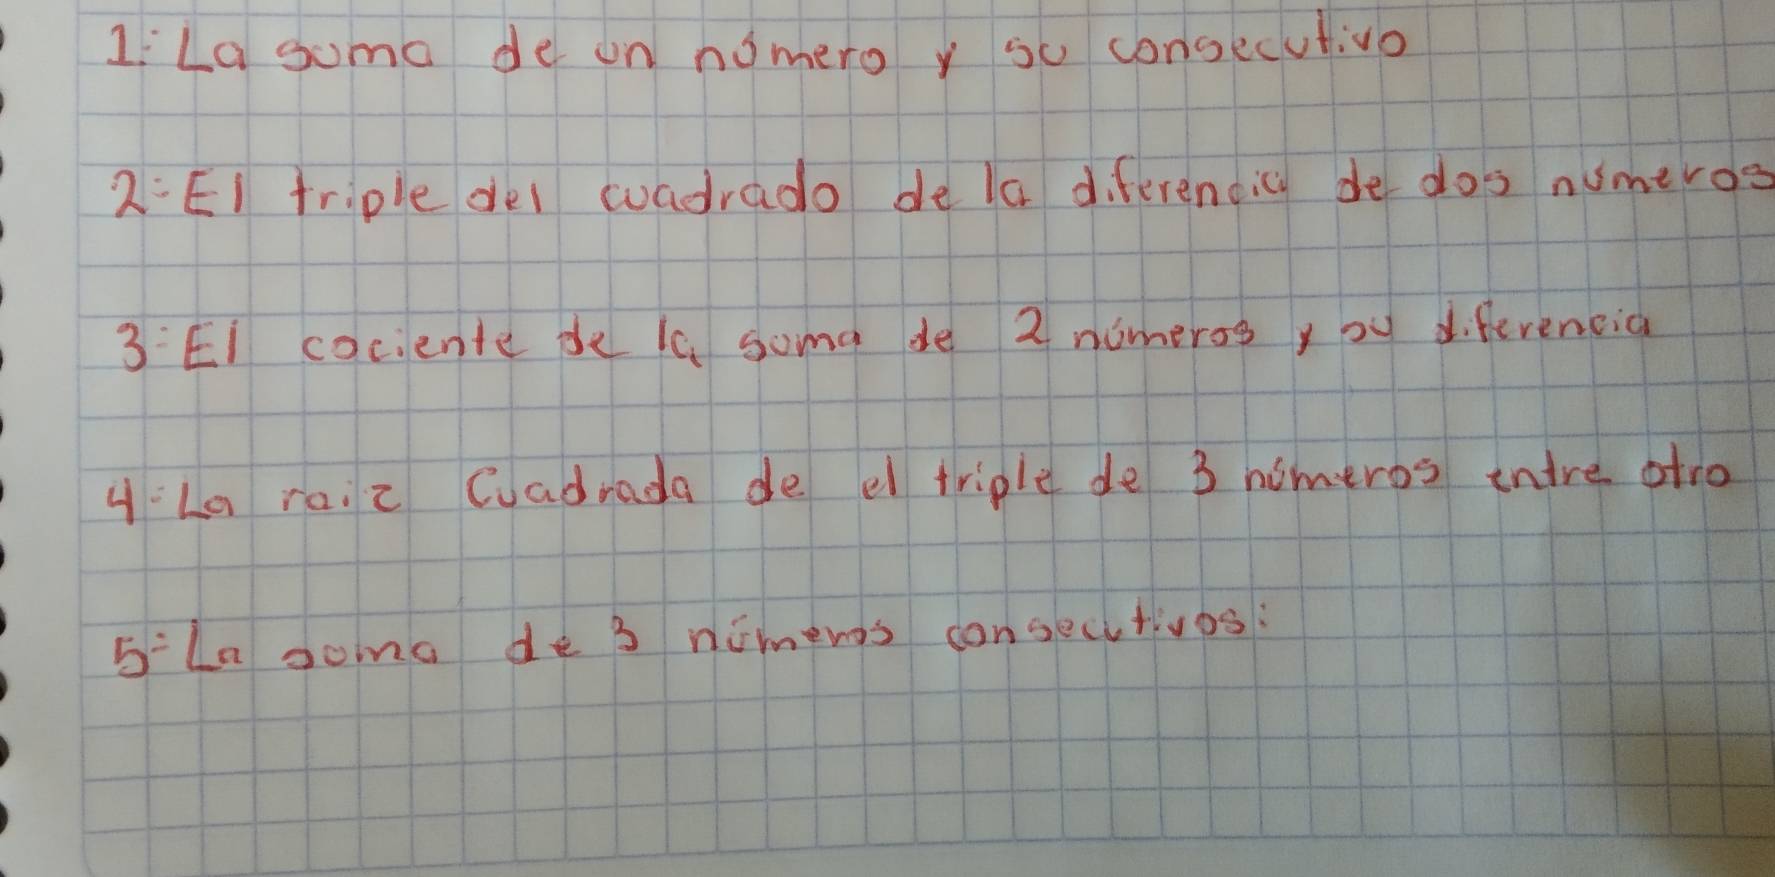 1: La suma de un número y su consecutivo
2: El triple del cuadrado de la diferencia de dos números
3: El cociente de la suma de 2 números y su diferencia
4: La raiz Cuadrada de el triple de 3 números entre otro
5: La suma de 3 números consecutivos: